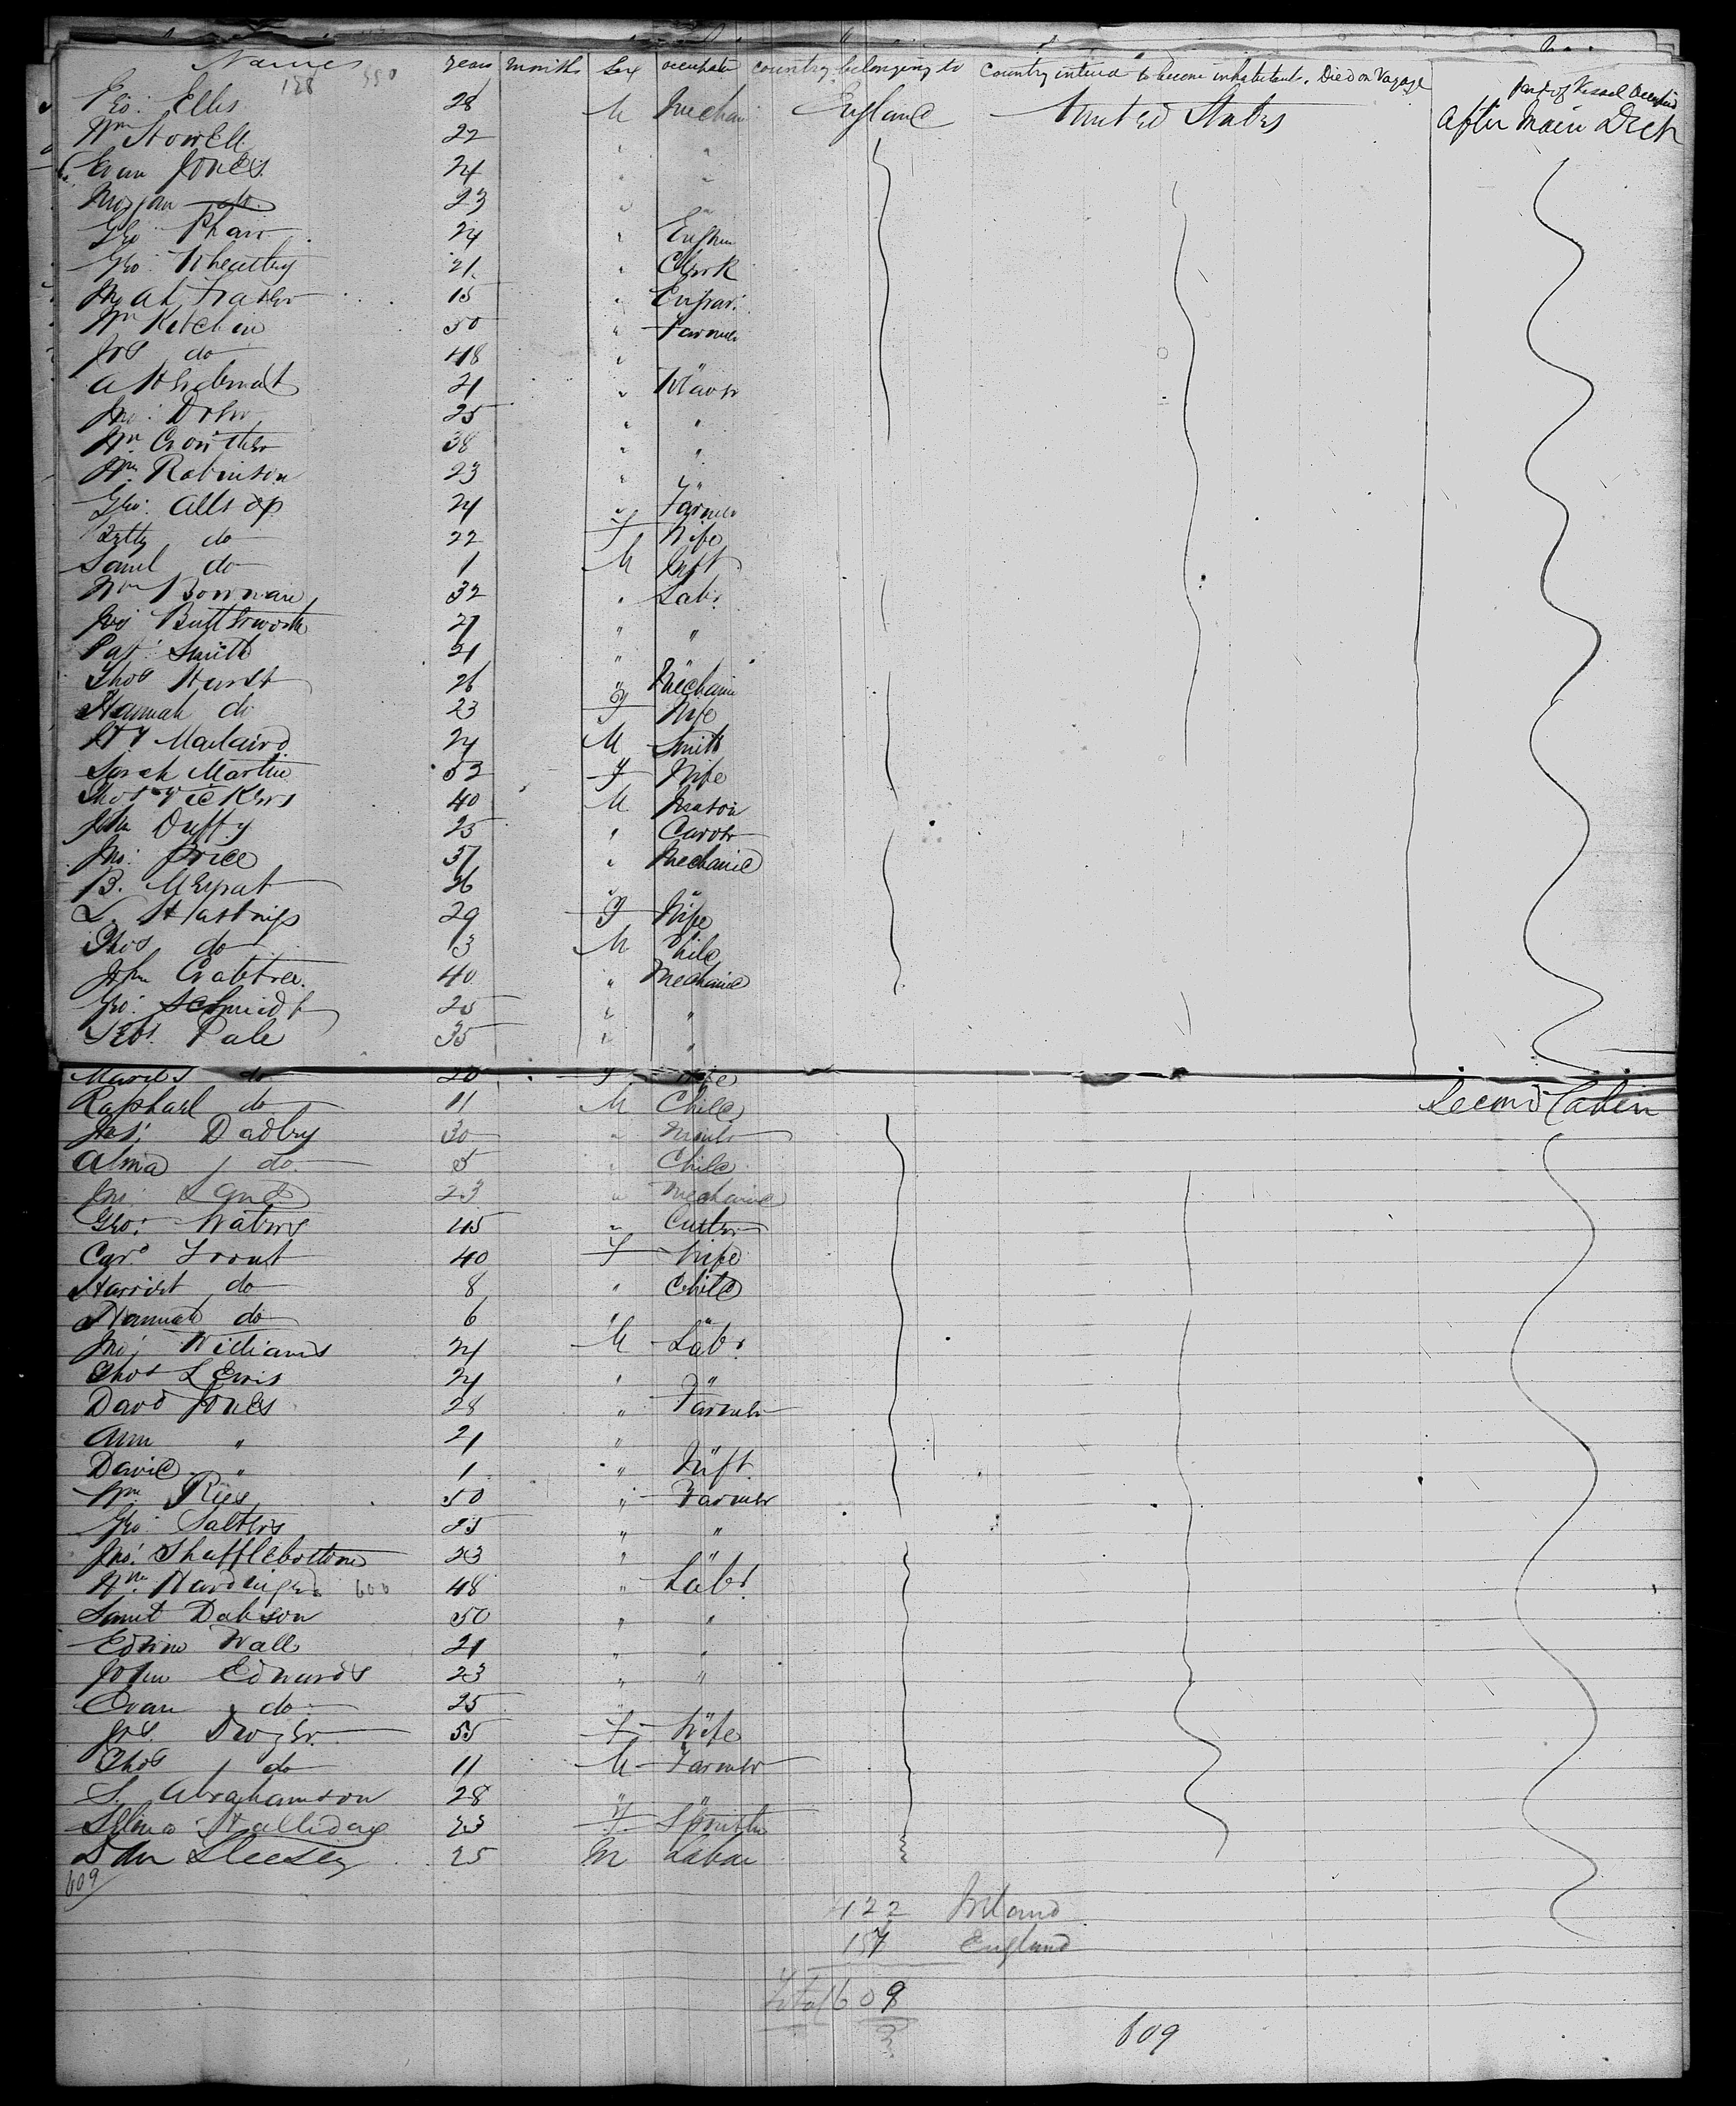 Names years months Sex occupation country belonging to Country intend to become inhabitants. Died on Voyage part of Vessel Occupied
128 550
Geo: Ellis 28 M Mechan England United States After Main Deck
Wm Howell 22 " "
Evan Jones 24 " "
Morgan do 23 " "
Geo: 24 "
Geo: Wheatley 21 " Clerk
15 "
Wm Kitchin 50 " Farmer
Jos do 48 " "
A 21 "
Jno: 25 " "
Wm Crowther 38 " "
Wm Robinson 23 " "
Geo: Allsop 24 " Farmer
do 22 F Wife
Saml do 1 M Inft
Wm Bowman 32 " Labr
Jos Butterworth 27 " "
Pat: Smith 21 " "
Thos Hurst 26 " Mechanic
Hannah do 23 F Wife
24 M Smith
Sarah Martin F Wife
Thos Vickers 40 M Mason
John Duffy 25 "
Jno: Price 37 " Mechanic
B. 26 " "
L. Hastings 29 F Wife
Thos do 13 M Child
John Crabtree 40 " Mechanic
Geo: Schmidt 25 " "
Pale 35 " "
do 20 F Wife
Raphael do 11 M Child Second Cabin
30 "
Alma do 5 " Child
Jno: 23 " Mechanic
Geo: Waters 45 " Cutler
Caro Trout 40 F Wife
Harriet do 8 " Child
Hannah do 6 " "
Jno: Williams 24 M Labr
Thos Lewis 24 " "
Davd Jones 28 " Farmer
Ann " 21 "
David " 1 " Inft
Wm Rees 50 " Farmer
Geo: Salters " "
Jno: Shafflebottom 23 " "
Wm 600 48 " Labr
Saml Dabson 50 " "
Edwin Wall 21 " "
John Edwards 23 " "
Evan do 25 "
55 F Wife
Thos do 11 M Farmer
S. Abrahamson 28 " "
Selina Halliday 23 F Spinster
25 M
609
422 Ireland
157 England
Total 609
609